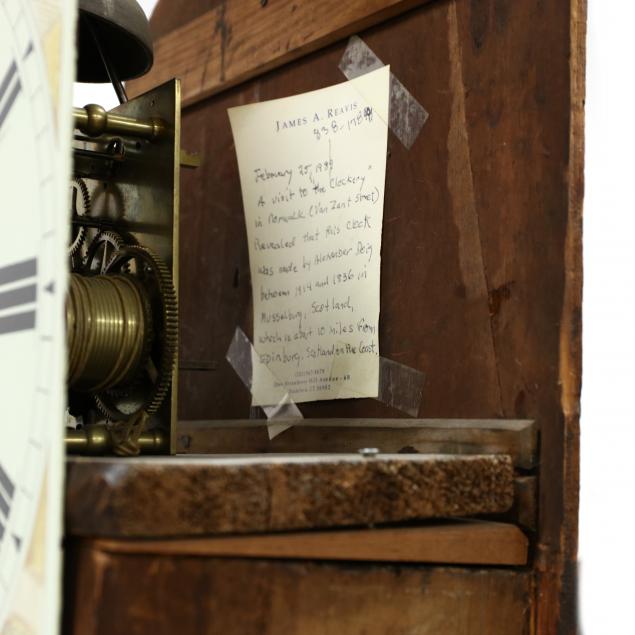 JAMES A. REAVIS
838-178
February 25, 1989
A visit to the Clockery"
in Norwalk (Van Zant Street)
Revealed that this clock
was made by Alexander Deig
between 1914 and 1836 in
Musselburg, Scotland,
which is about 10 miles from
Edinburg, Scotland on the Coast.
Strawberry Hill Avenue - 6B